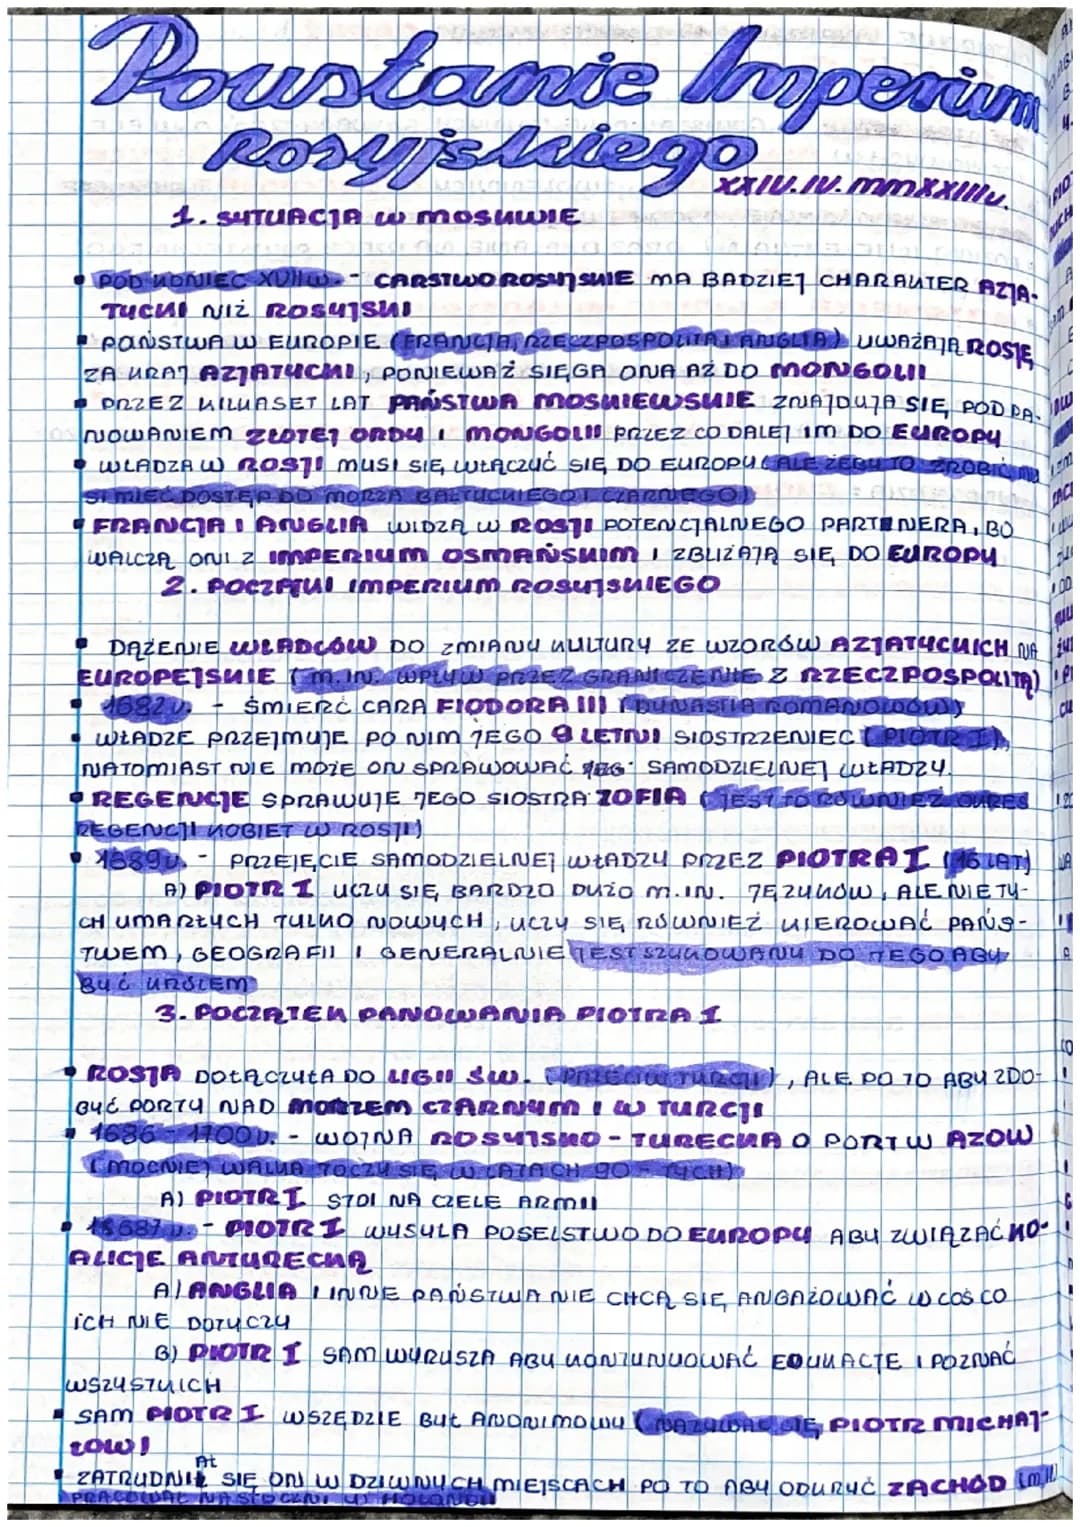 Powstanie Imperium
Rosyjskiego
XXIV.IV.MMXXIIIr.
1. SYTUACJA W MOSKWIE
▪ POD KONIEC XVIIw. - CARSTWO ROSYJSKIE MA BADZIEJ CHARAKTER AZJA-
TYCKI NIŻ ROSYJSKI
▪ PAŃSTWA W EUROPIE (FRANCJA, RZECZPOSPOLITA I ANGLIA) UWAŻAJĄ ROSJĘ
ZA KRAJ AZJATYCKI, PONIEWAŻ SIĘGA ONA AŻ DO MONGOLII
▪ PRZEZ KILKASET LAT PAŃSTWA MOSKIEWSKIE ZNAJDUJĄ SIĘ POD PA-
NOWANIEM ZŁOTEJ ORDY I MONGOLII PRZEZ CO DALEJ IM DO EUROPY
▪ WŁADZA W ROSJI MUSI SIĘ WŁĄCZYĆ SIĘ DO EUROPY (ALE ŻEBY TO ZROBIĆ MU
SI MIEĆ DOSTĘP DO MORZA BAŁTYCKIEGO I CZARNEGO)
▪ FRANCJA I ANGLIA WIDZĄ W ROSJI POTENCJALNEGO PARTNERA, BO
WALCZĄ ONI Z IMPERIUM OSMAŃSKIM I ZBLIŻAJĄ SIĘ DO EUROPY
2. POCZĄTKI IMPERIUM ROSYJSKIEGO
▪ DĄŻENIE WŁADCÓW DO ZMIANY KULTURY ZE WZORÓW AZJATYCKICH NA
EUROPEJSKIE (M.IN. WPŁYW PRZEZ GRANICZENIE Z RZECZPOSPOLITĄ)
▪ 1682r. - ŚMIERĆ CARA FIODORA III (DYNASTIA ROMANOWÓW)
▪ WŁADZE PRZEJMUJE PO NIM JEGO 9 LETNI SIOSTRZENIEC (PIOTR I),
NATOMIAST NIE MOŻE ON SPRAWOWAĆ SAMODZIELNEJ WŁADZY.
▪ REGENCJE SPRAWUJE JEGO SIOSTRA ZOFIA (JEST TO RÓWNIEŻ OKRES
REGENCJI KOBIET W ROSJI)
▪ 1689r. - PRZEJĘCIE SAMODZIELNEJ WŁADZY PRZEZ PIOTRA I (16 LAT)
A) PIOTR I UCZY SIĘ BARDZO DUŻO M.IN. JĘZYKÓW, ALE NIE TY-
CH UMARŁYCH TYLKO NOWYCH, UCZY SIĘ RÓWNIEŻ KIEROWAĆ PAŃS-
TWEM, GEOGRAFII I GENERALNIE JEST SZYKOWANY DO TEGO ABY
BYĆ KRÓLEM
3. POCZĄTEK PANOWANIA PIOTRA I
▪ ROSJA DOŁĄCZYŁA DO LIGII ŚW. (PRZECIW TURCJI), ALE PO TO ABY ZDO-
BYĆ PORTY NAD MORZEM CZARNYM I W TURCJI
▪ 1686-1700r. - WOJNA ROSYJSKO-TURECKA O PORT W AZOW
(MOCNIEJ WALKA TOCZY SIĘ W LATACH 90-TYCH)
A) PIOTR I STOI NA CZELE ARMII
▪ PIOTR I WYSYŁA POSELSTWO DO EUROPY ABY ZWIĄZAĆ KO-
ALICJE ANTYRECKĄ
A) ANGLIA I INNE PAŃSTWA NIE CHCĄ SIĘ ANGAŻOWAĆ W COŚ CO
ICH NIE DOTYCZY
B) PIOTR I SAM WYRUSZA ABY KONTYNUOWAĆ EDUKACJE I POZNAĆ
WSZYSTKICH
▪ SAM PIOTR I WSZĘDZIE BYŁ ANONIMOWY (NAZYWAĆ SIĘ PIOTR MICHAJ-
ŁOW)
▪ ZATRUDNIAŁ SIĘ ON W DZIWNYCH MIEJSCACH PO TO ABY ODKRYĆ ZACHÓD (M.IN.
PRACOWAŁ NA STOCZNI W HOLANDII